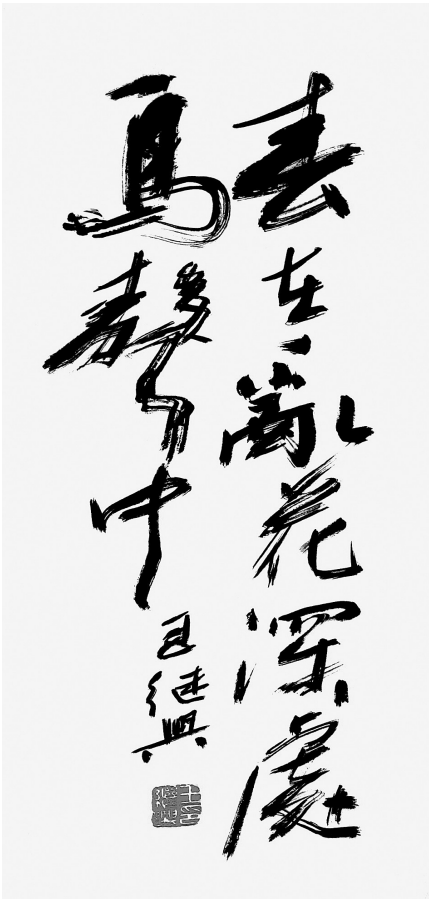 春在亂花深處
鳥聲中
王継興